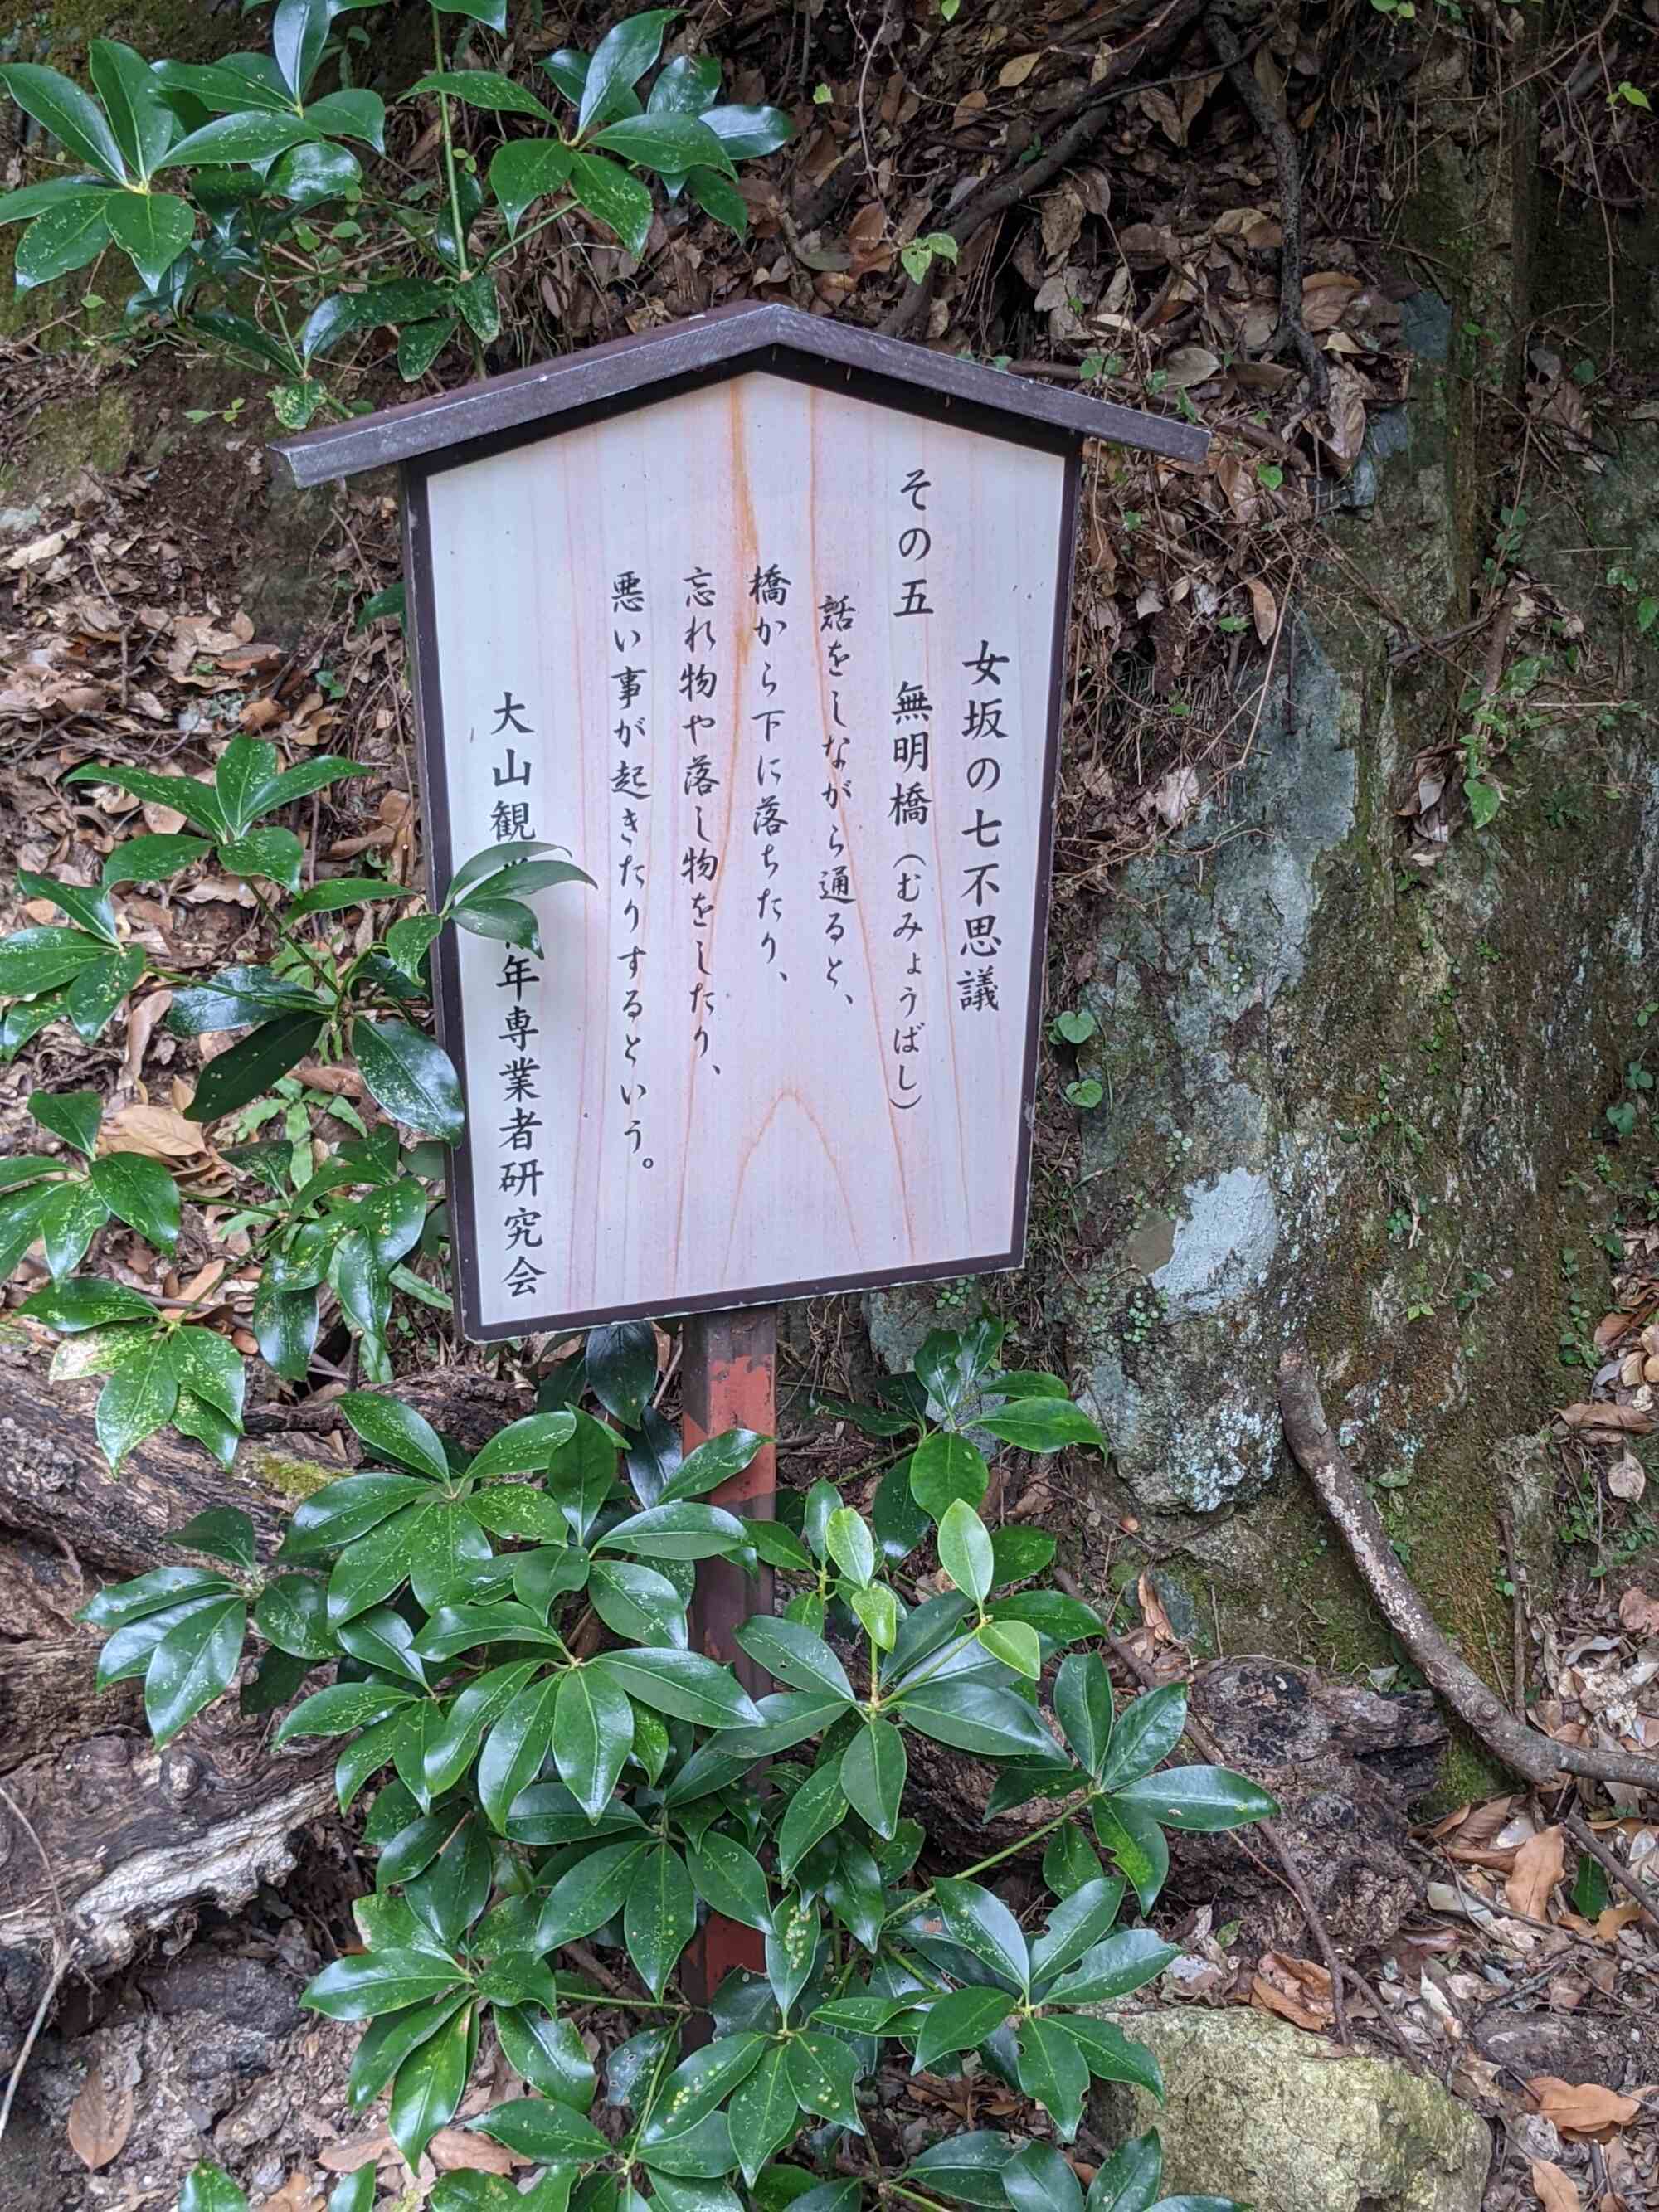 女坂の七不思議
その五　無明橋（むみょうばし）
話をしながら通ると、
橋から下に落ちたり、
忘れ物や落し物をしたり、
悪い事が起きたりするという。
大山観 年専業者研究会